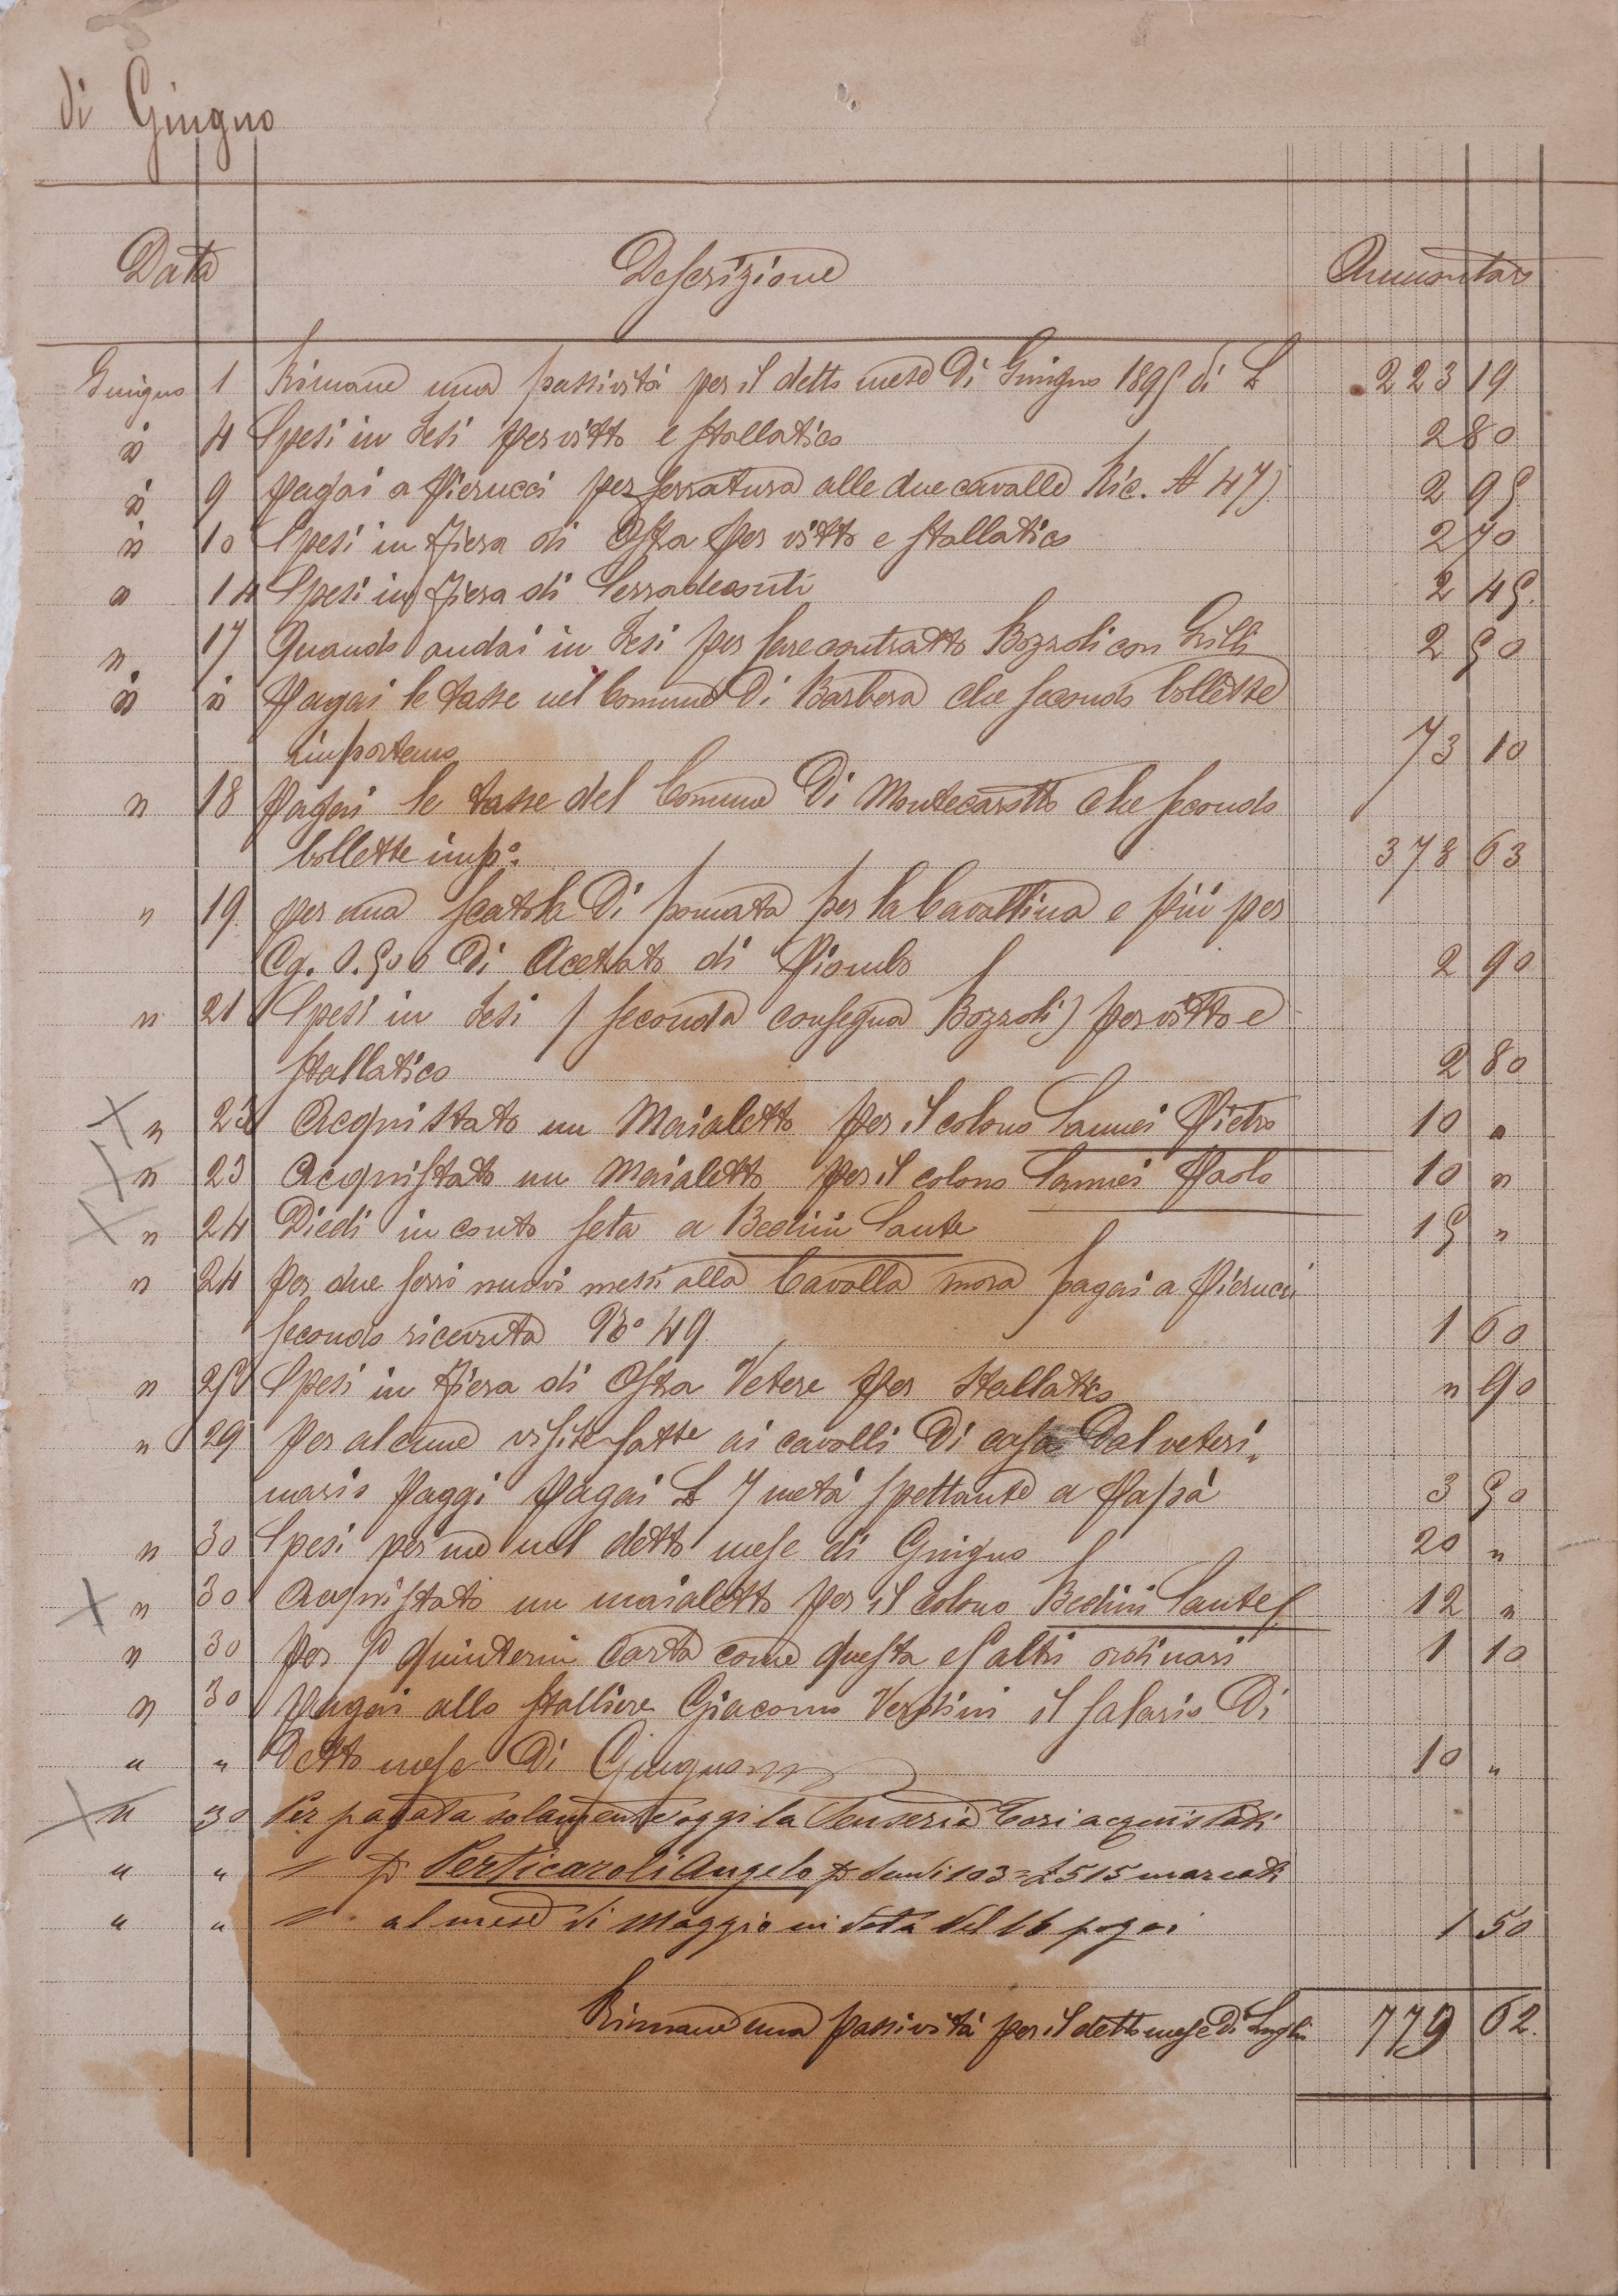 di Giugno
Data Descrizione Ammontare
Giugno 1 Rimane una passività per il detto mese di Giugno 1895 di L 223 19
" 4 Spesi in Jesi per vitto e stallatico 2 80
" 9 pagai a Pierucci per ferratura alle due cavalle Ric. N 47) 2 95
" 10 Spesi in Fiera di Ostra per vitto e stallatico 2 70
" 14 Spesi in Fiera di Serradeconti 2 45
" 17 Quando andai in Jesi per fare contratto Bozzoli con 2 50
" " Pagai le tasse nel Comune di Barbera che secondo bollette
importano 73 10
" 18 Pagai le tasse del Comune di Montecarotto che secondo
bollette imp.° 378 63
" 19 per una scatola di pomata per la Cavallina e più per
Cg. 0.500 di Acetato di Piombo 2 90
" 21 Spesi in Jesi (seconda consegna Bozzoli) per vitto e
stallatico 2 80
" 23 Acquistato un Maialetto per il colono Sannei Pietro 10 "
" 23 Acquistato un Maialetto per il colono Sannei Paolo 10 "
" 24 Diedi in conto seta a Bedini Sante 15 "
" 24 Per due ferri nuovi messi alla Cavalla mora pagai a Pierucci
secondo ricevuta N° 49 1 60
" 25 Spesi in Fiera di Ostra Vetere per stallatico " 90
" 29 Per alcune visite fatte ai cavalli di casa Dal veteri
nario Paggi Pagai L 7 metà spettante a Papà 3 50
" 30 Spesi per me nel detto mese di Giugno 20 "
" 30 Acquistato un maialetto per il colono Bedini Sante 12 "
" 30 Per 5 quinterni Carta come questa e 5 altri ordinari 1 10
" 30 pagai allo stalliere Giacomo Verdini il salario Di
" " Detto mese Di Giugno 10 "
" 30 Per pagata solamente oggi la Senseria Tori acquistati
" " " p Perticaroli Angelo p Scudi 103 = L 515 marcati
" " " al mese di Maggio in data del 16 pagai 1 50
Rimane una passività per il detto mese di Luglio 779 62